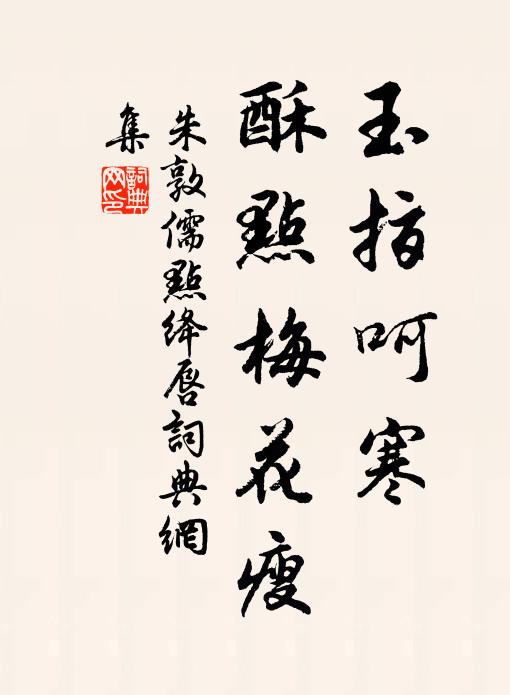 玉指呵寒
酥點梅花瘦
朱敦儒點絳唇詞典網
集
詞典
网印